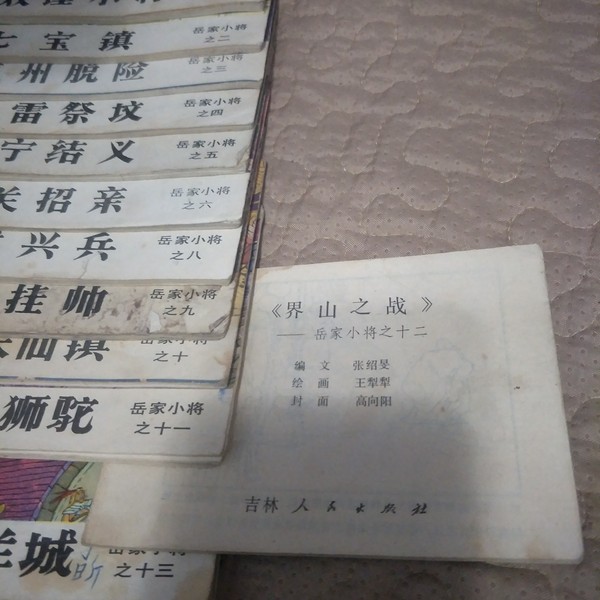 七宝镇
岳家小将
之二
州脱险
岳家小将
之三
雷祭坟
岳家小将
之四
宁结义
岳家小将
之五
招亲
岳家小将
之六
兴兵
岳家小将
之八
挂帅
岳家小将
之九
仙镇
岳家小将
之十
狮驼
岳家小将
之十一
城
岳家小将
之十三
《界山之战》
——岳家小将之十二
编 文 张绍旻
绘 画 王犁犁
封 面 高向阳
吉林人民出版社